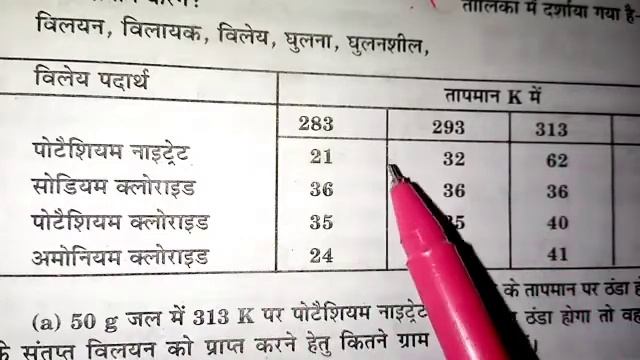 तालिका में दर्शाया गया है-
विलयन, विलायक, विलेय, घुलना, घुलनशील,
विलेय पदार्थ तापमान K में
283 293 313
पोटैशियम नाइट्रेट 21 32 62
सोडियम क्लोराइड 36 36 36
पोटैशियम क्लोराइड 35 35 40
अमोनियम क्लोराइड 24 41
के तापमान पर ठंडा
(a) 50 g जल में 313 K पर पोटैशियम नाइट्रेट ठंडा होगा तो वह
के संतृप्त विलयन को प्राप्त करने हेतु कितने ग्राम